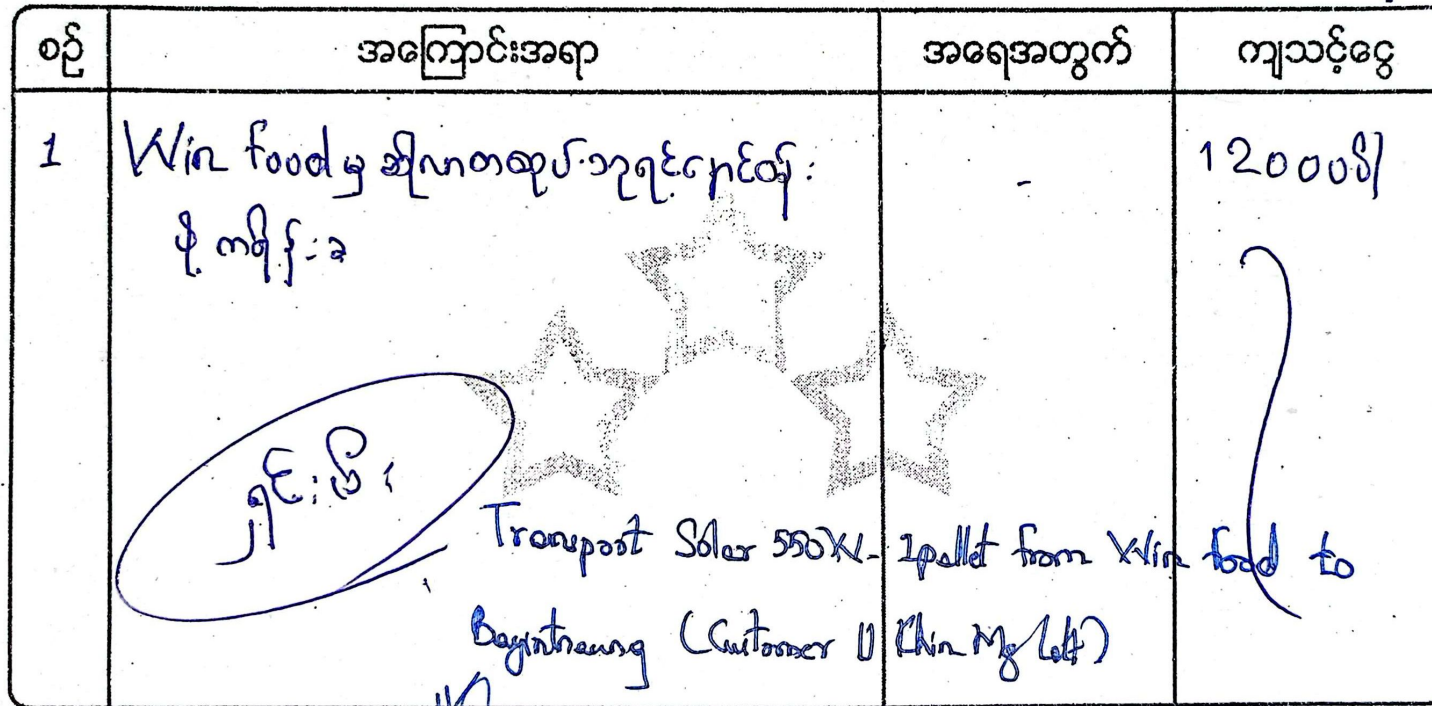 စဉ် အကြောင်းအရာ အရေအတွက် ကျသင့်ငွေ
1 Win food မှ ဆိုလာတထုပ် ဘုရင့်နောင်ထိန်း - 12000ိ/
ပို့ ကရိန်းခ
ရှင်းပြီး
Transport Solar 550W - 1pallet from Win food to
Bayintnaung (Customer U Khin Mg Latt)